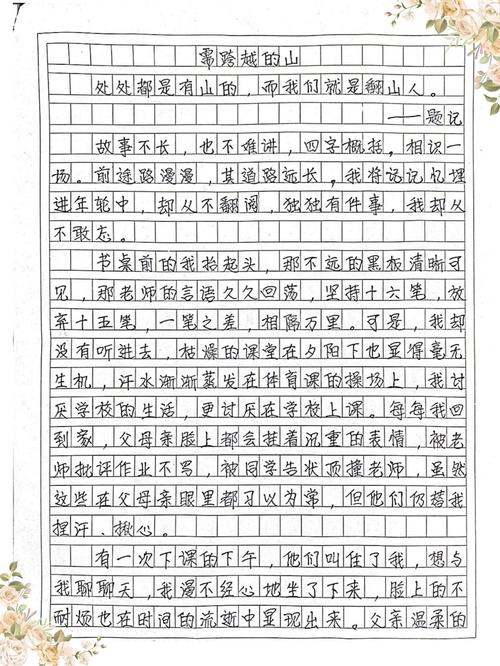 需跨越的山
处处都是有山的，而我们就是翻山人。
——题记
故事不长，也不难讲，四字概括，相识一
场。前途路漫漫，其道路远长。我将记记忆埋
进年轮中，却从不翻阅，独独有件事，我却从
不敢忘。
书桌前的我抬起头，那不远的黑板清晰可
见，那老师的言语久久回荡，坚持十六笔，放
弃十五笔，一笔之差，相隔万里。可是，我却
没有听进去，枯燥的课堂在夕阳下也显得毫无
生机，汗水渐渐蒸发在体育课的操场上，我讨
厌学校的生活，更讨厌在学校上课。每每我回
到家，父母亲脸上都会挂着沉重的表情，被老
师批评作业不写，被同学告状顶撞老师，虽然
这些在父母亲眼里都习以为常，但他们仍替我
捏汗、揪心。
有一次下课的下午，他们叫住了我，想与
我聊聊天，我漫不经心地坐了下来，脸上的不
耐烦也在时间的流逝中显现出来。父亲温柔的